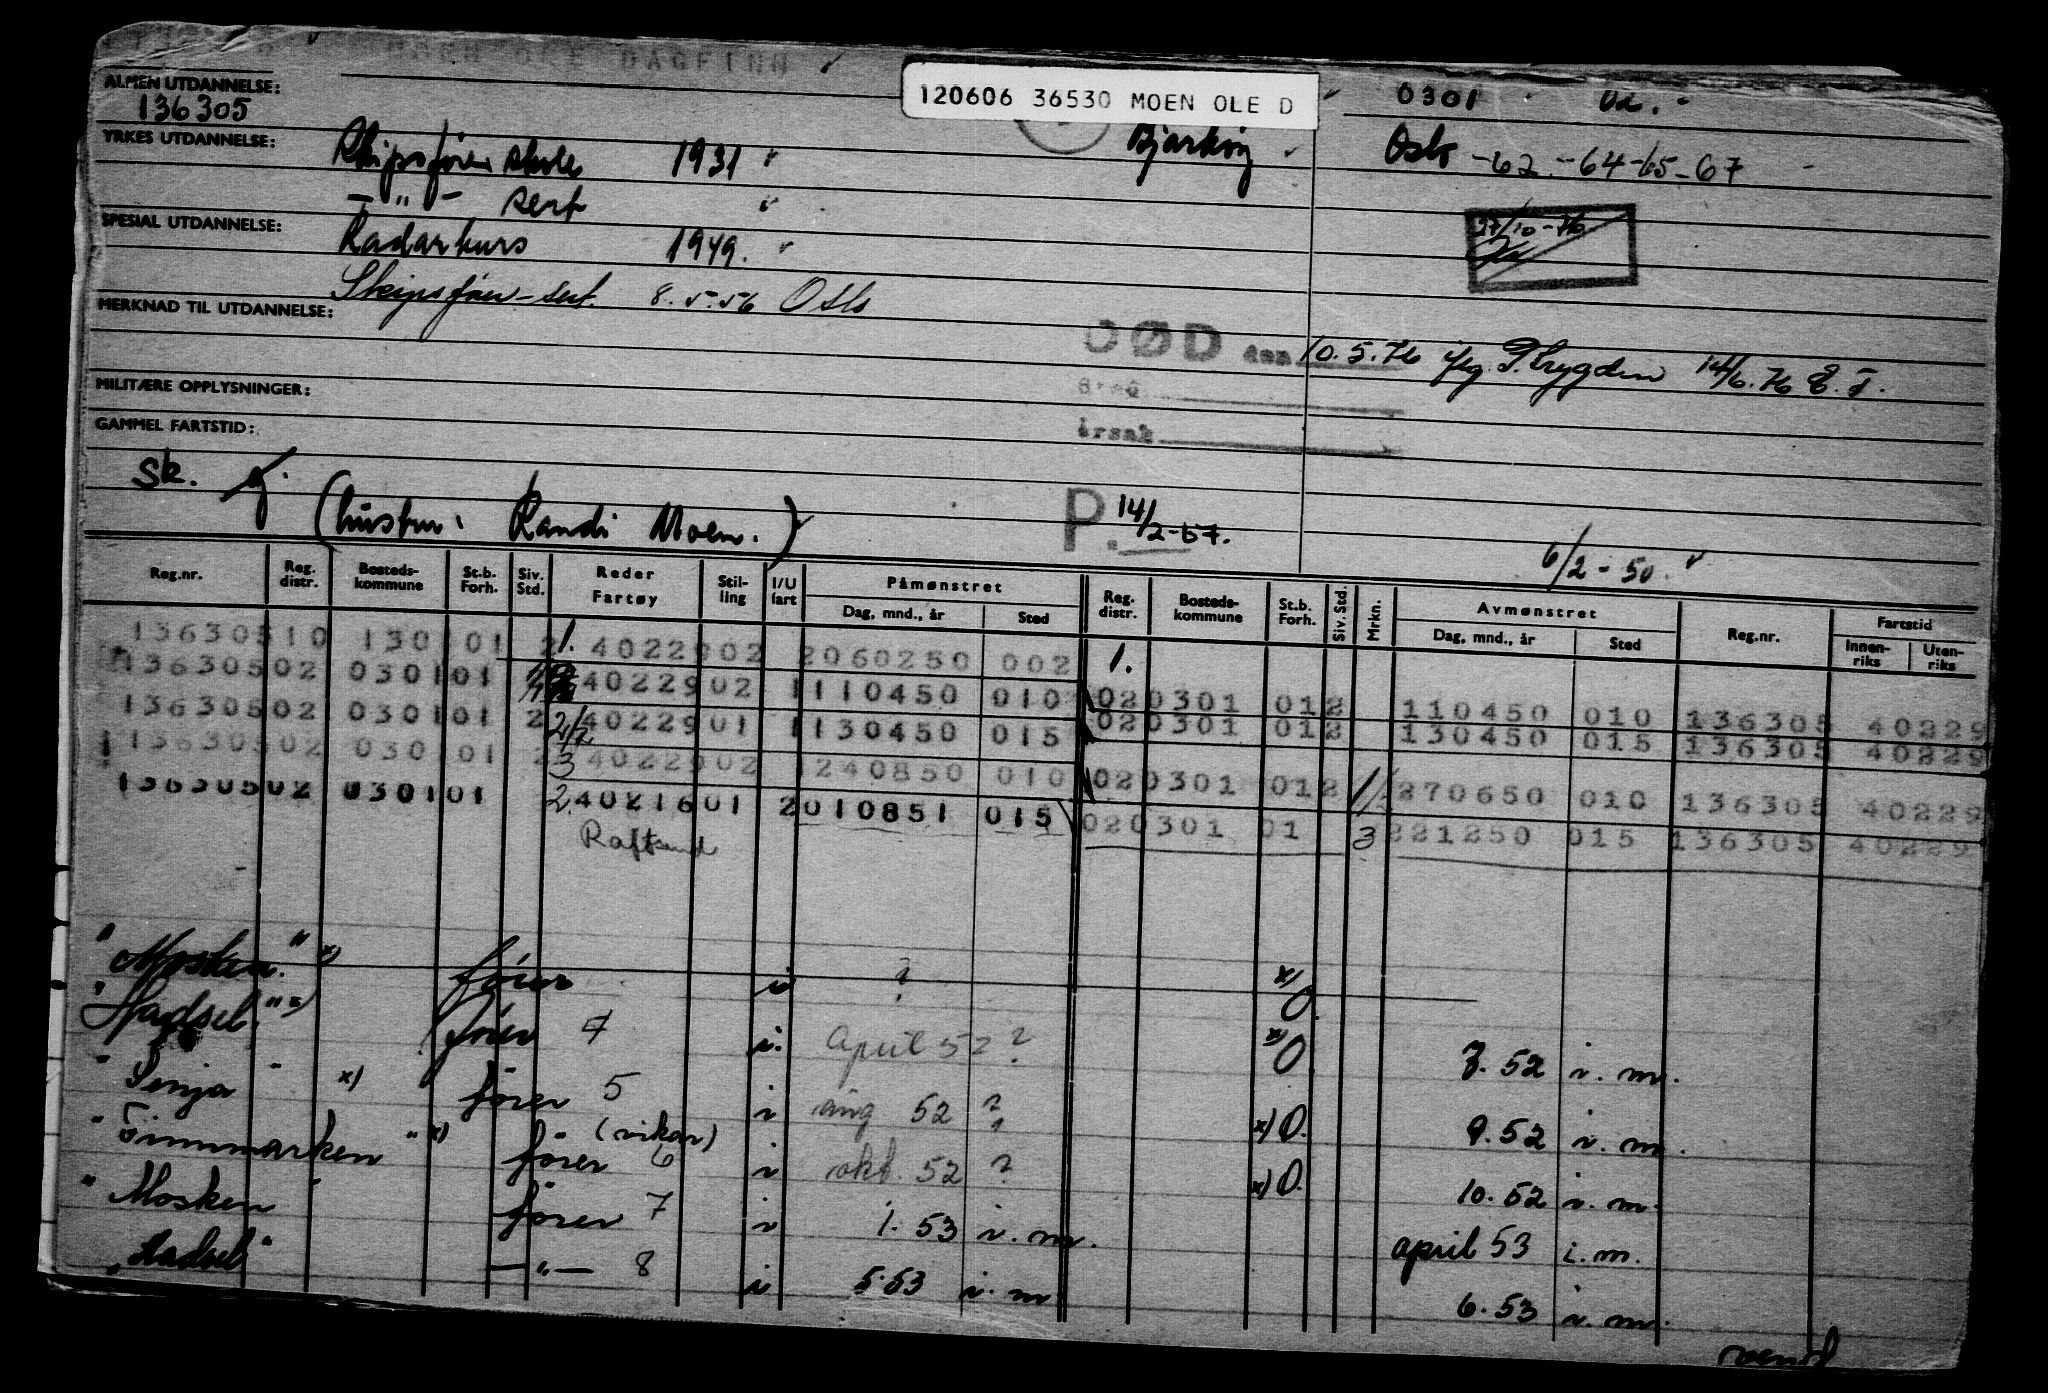 MOEN OLE DAGFINN
120606 36530 MOEN OLE D
0301
ALMEN UTDANNELSE:
136305
YRKES UTDANNELSE:
Skipsførerskole 1931
Bjarkøy
Oslo -62 -64-65-67
— " — sert
SPESIAL UTDANNELSE:
Radarkurs 1949.
27/10-76
Skipsfører-sert. 8.5.56 Oslo
MERKNAD TIL UTDANNELSE:
DØD den 10.5.76 ifg. P.trygden 14/6.76
MILITÆRE OPPLYSNINGER:
årsak
GAMMEL FARTSTID:
Sk.
(hustru: Randi Moen.)
P. 14/2-67.
6/2-50.
Reg.nr. Reg. distr. Bosteds-kommune St.b. Forh. Siv. Std. Reder Fartøy Stil-ling I/U fart Påmønstret Dag, mnd., år Sted Reg. distr. Bosteds-kommune St.b. Forh. Siv. Std. Mrkn. Avmønstret Dag, mnd., år Sted Reg.nr. Fartstid Innen-riks Uten-riks
13630510 130101 2 1. 40222902 2060250 002 1.
13630502 030101 40222902 1110450 010 020301 012 110450 010 136305 40229
13630502 030101 2 40222901 1130450 015 020301 012 130450 015 136305 40229
13630502 030101 2 3 40222902 1240850 010 020301 012 270650 010 136305 40229
13630502 030101 2. 4021601 2010851 015 020301 01 3 221250 015 136305 40229
Raftsund
"Mosken." x) fører i ? x) O.
"Hadsel." x) fører 4 i. april 52 ? x) O 7. 52 i. m.
"Senja" x) fører 5 i aug 52 ? x) O. 9. 52 i. m.
"Finnmarken" x) fører (vikar) 6 i okt. 52 ? x) O. 10. 52 i. m.
"Mosken" fører 7 i 1. 53 i. m. april 53 i. m.
"Hadsel" — " — 8 i 5.53 i. m 6. 53 i. m.
vend